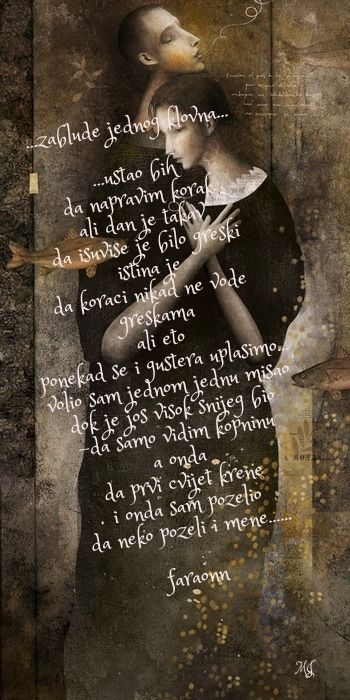 ...zablude jednog klovna...
...ustao bih
da napravim korak
ali dan je takav
da isuvise je bilo greski
istina je
da koraci nikad ne vode
greskama
ali eto
ponekad se i gustera uplasimo...
volio sam jednom jednu misao
dok je jos visok snijeg bio
-da samo vidim kopninu
a onda
da prvi cvijet krene
i onda sam pozelio
da neko pozeli i mene......
faraonn